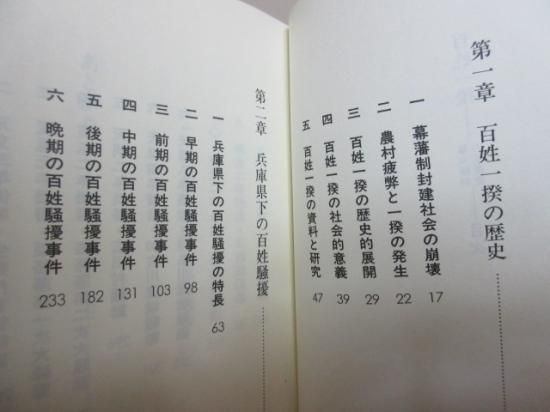 第一章 百姓一揆の歴史
一 幕藩制封建社会の崩壊 17
二 農村疲弊と一揆の発生 22
三 百姓一揆の歴史的展開 29
四 百姓一揆の社会的意義 39
五 百姓一揆の資料と研究 47
第二章 兵庫県下の百姓騒擾
一 兵庫県下の百姓騒擾の特長 63
二 早期の百姓騒擾事件 98
三 前期の百姓騒擾事件 103
四 中期の百姓騒擾事件 131
五 後期の百姓騒擾事件 182
六 晩期の百姓騒擾事件 233